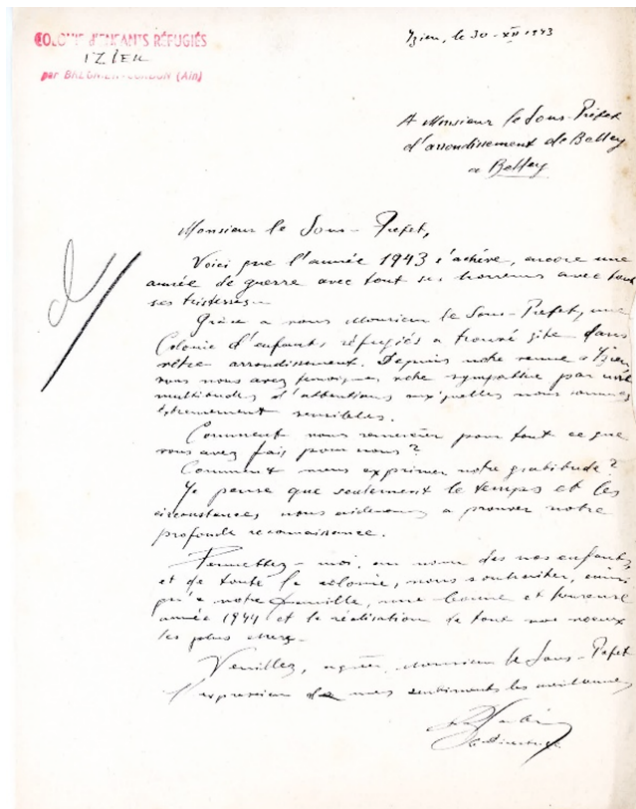 COLONIE d'ENFANTS RÉFUGIÉS
IZIEU
par BREGNIER-CORDON (Ain)
Izieu, le 30-XII 1943
A Monsieur le Sous-Préfet
d'arrondissement de Belley
a Belley
Monsieur le Sous-Prefet,
Voici que l'année 1943 s'achève, encore une
année de guerre avec tout ses horreurs avec tout
ses tristesses.
Grâce a vous Monsieur le Sous-Prefet, une
Colonie d'enfants réfugiés a trouvé gite dans
vôtre arrondissement. Depuis notre venue a Izieu
vous nous avez votre sympathie par une
multitude d'attentions auxquelles nous sommes
extrêmement sensibles.
Comment vous remercier pour tout ce que
vous avez fais pour nous?
Comment vous exprimer notre gratitude?
Je pense que seulement le temps et les
circonstances nous aiderons a prouver notre
profonde reconnaissance.
Permettez-moi, au nom des nos enfants,
et de toute la colonie, vous souhaiter, ainsi
qu'a votre famille, une bonne et heureuse
année 1944 et la réalisation de tout vos voeux
les plus chers.
Veuillez, agréer, Monsieur le Sous-Prefet
l'expression de mes sentiments les meilleurs